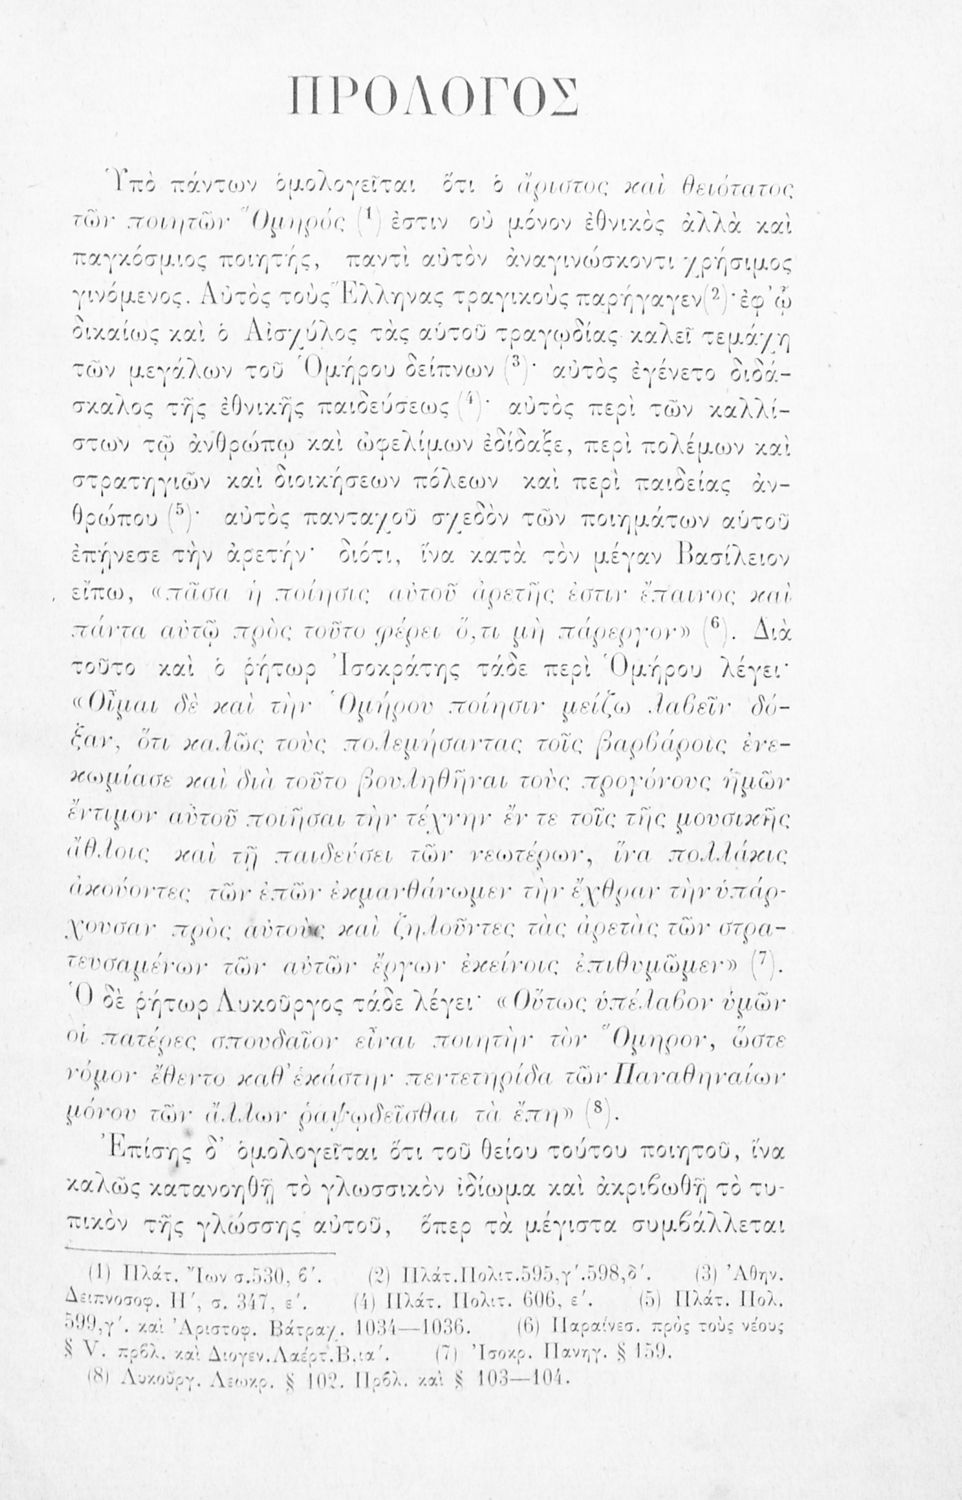 ΠΡΟΛΟΓΟΣ
Ὑπὸ πάντων ὁμολογεῖται ὅτι ὁ ἄριστος καὶ θειότατος
τῶν ποιητῶν Ὅμηρός (1) ἐστιν οὐ μόνον ἐθνικὸς ἀλλὰ καὶ
παγκόσμιος ποιητής, παντὶ αὐτὸν ἀναγινώσκοντι χρήσιμος
γινόμενος. Αὐτὸς τοὺς Ἕλληνας τραγικοὺς παρήγαγεν(2)· ἐφ' ᾧ
δικαίως καὶ ὁ Αἰσχύλος τὰς αὑτοῦ τραγῳδίας καλεῖ τεμάχη
τῶν μεγάλων τοῦ Ὁμήρου δείπνων (3)· αὐτὸς ἐγένετο διδά-
σκαλος τῆς ἐθνικῆς παιδεύσεως (4)· αὐτὸς περὶ τῶν καλλί-
στων τῷ ἀνθρώπῳ καὶ ὠφελίμων ἐδίδαξε, περὶ πολέμων καὶ
στρατηγιῶν καὶ διοικήσεων πόλεων καὶ περὶ παιδείας ἀν-
θρώπου (5)· αὐτὸς πανταχοῦ σχεδὸν τῶν ποιημάτων αὑτοῦ
ἐπῄνεσε τὴν ἀρετήν· διότι, ἵνα κατὰ τὸν μέγαν Βασίλειον
εἴπω, «πᾶσα ἡ ποίησις αὐτοῦ ἀρετῆς ἐστιν ἔπαινος καὶ
πάντα αὐτῷ πρὸς τοῦτο φέρει ὅ,τι μὴ πάρεργον» (6). Διὰ
τοῦτο καὶ ὁ ῥήτωρ Ἰσοκράτης τάδε περὶ Ὁμήρου λέγει·
«Οἶμαι δὲ καὶ τὴν Ὁμήρου ποίησιν μείζω λαβεῖν δό-
ξαν, ὅτι καλῶς τοὺς πολεμήσαντας τοῖς βαρβάροις ἐνε-
κωμίασε καὶ διὰ τοῦτο βουληθῆναι τοὺς προγόνους ἡμῶν
ἔντιμον αὐτοῦ ποιῆσαι τὴν τέχνην ἔν τε τοῖς τῆς μουσικῆς
ἄθλοις καὶ τῇ παιδεύσει τῶν νεωτέρων, ἵνα πολλάκις
ἀκούοντες τῶν ἐπῶν ἐκμανθάνωμεν τὴν ἔχθραν τὴν ὑπάρ-
χουσαν πρὸς αὐτοὺς καὶ ζηλοῦντες τὰς ἀρετὰς τῶν στρα-
τευσαμένων τῶν αὐτῶν ἔργων ἐκείνοις ἐπιθυμῶμεν» (7).
Ὁ δὲ ῥήτωρ Λυκοῦργος τάδε λέγει· «Οὕτως ὑπέλαβον ὑμῶν
οἱ πατέρες σπουδαῖον εἶναι ποιητὴν τὸν Ὅμηρον, ὥστε
νόμον ἔθεντο καθ' ἑκάστην πεντετηρίδα τῶν Παναθηναίων
μόνου τῶν ἄλλων ῥαψῳδεῖσθαι τὰ ἔπη» (8).
Ἐπίσης δ' ὁμολογεῖται ὅτι τοῦ θείου τούτου ποιητοῦ, ἵνα
καλῶς κατανοηθῇ τὸ γλωσσικὸν ἰδίωμα καὶ ἀκριβωθῇ τὸ τυ-
πικὸν τῆς γλώσσης αὐτοῦ, ὅπερ τὰ μέγιστα συμβάλλεται
(1) Πλάτ. Ἴων σ.530, β΄. (2) Πλάτ.Πολιτ.595,γ΄.598,δ΄. (3) Ἀθην.
Δειπνοσοφ. Η΄, σ. 347, ε΄. (4) Πλάτ. Πολιτ. 606, ε΄. (5) Πλάτ. Πολ.
599,γ΄. καὶ Ἀριστοφ. Βάτραχ. 1034—1036. (6) Παραίνεσ. πρὸς τοὺς νέους
§ V. πρβλ. καὶ Διογεν.Λαέρτ.Β.ια΄. (7) Ἰσοκρ. Πανηγ. § 159.
(8) Λυκοῦργ. Λεωκρ. § 102. Πρβλ. καὶ § 103—104.